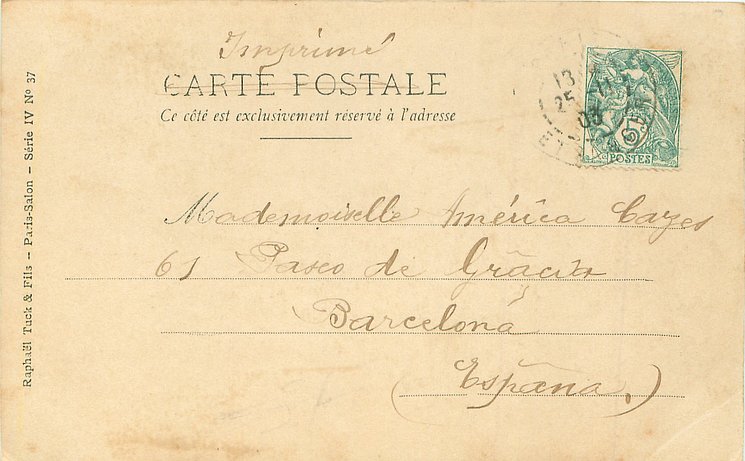 Imprimé
CARTE POSTALE
Ce côté est exclusivement réservé à l'adresse
13
25
03
POSTES
Mademoiselle América Cazes
61 Paseo de Gràcia
Barcelona
(España)
Raphaël Tuck & Fils - Paris-Salon - Série IV Nº 37